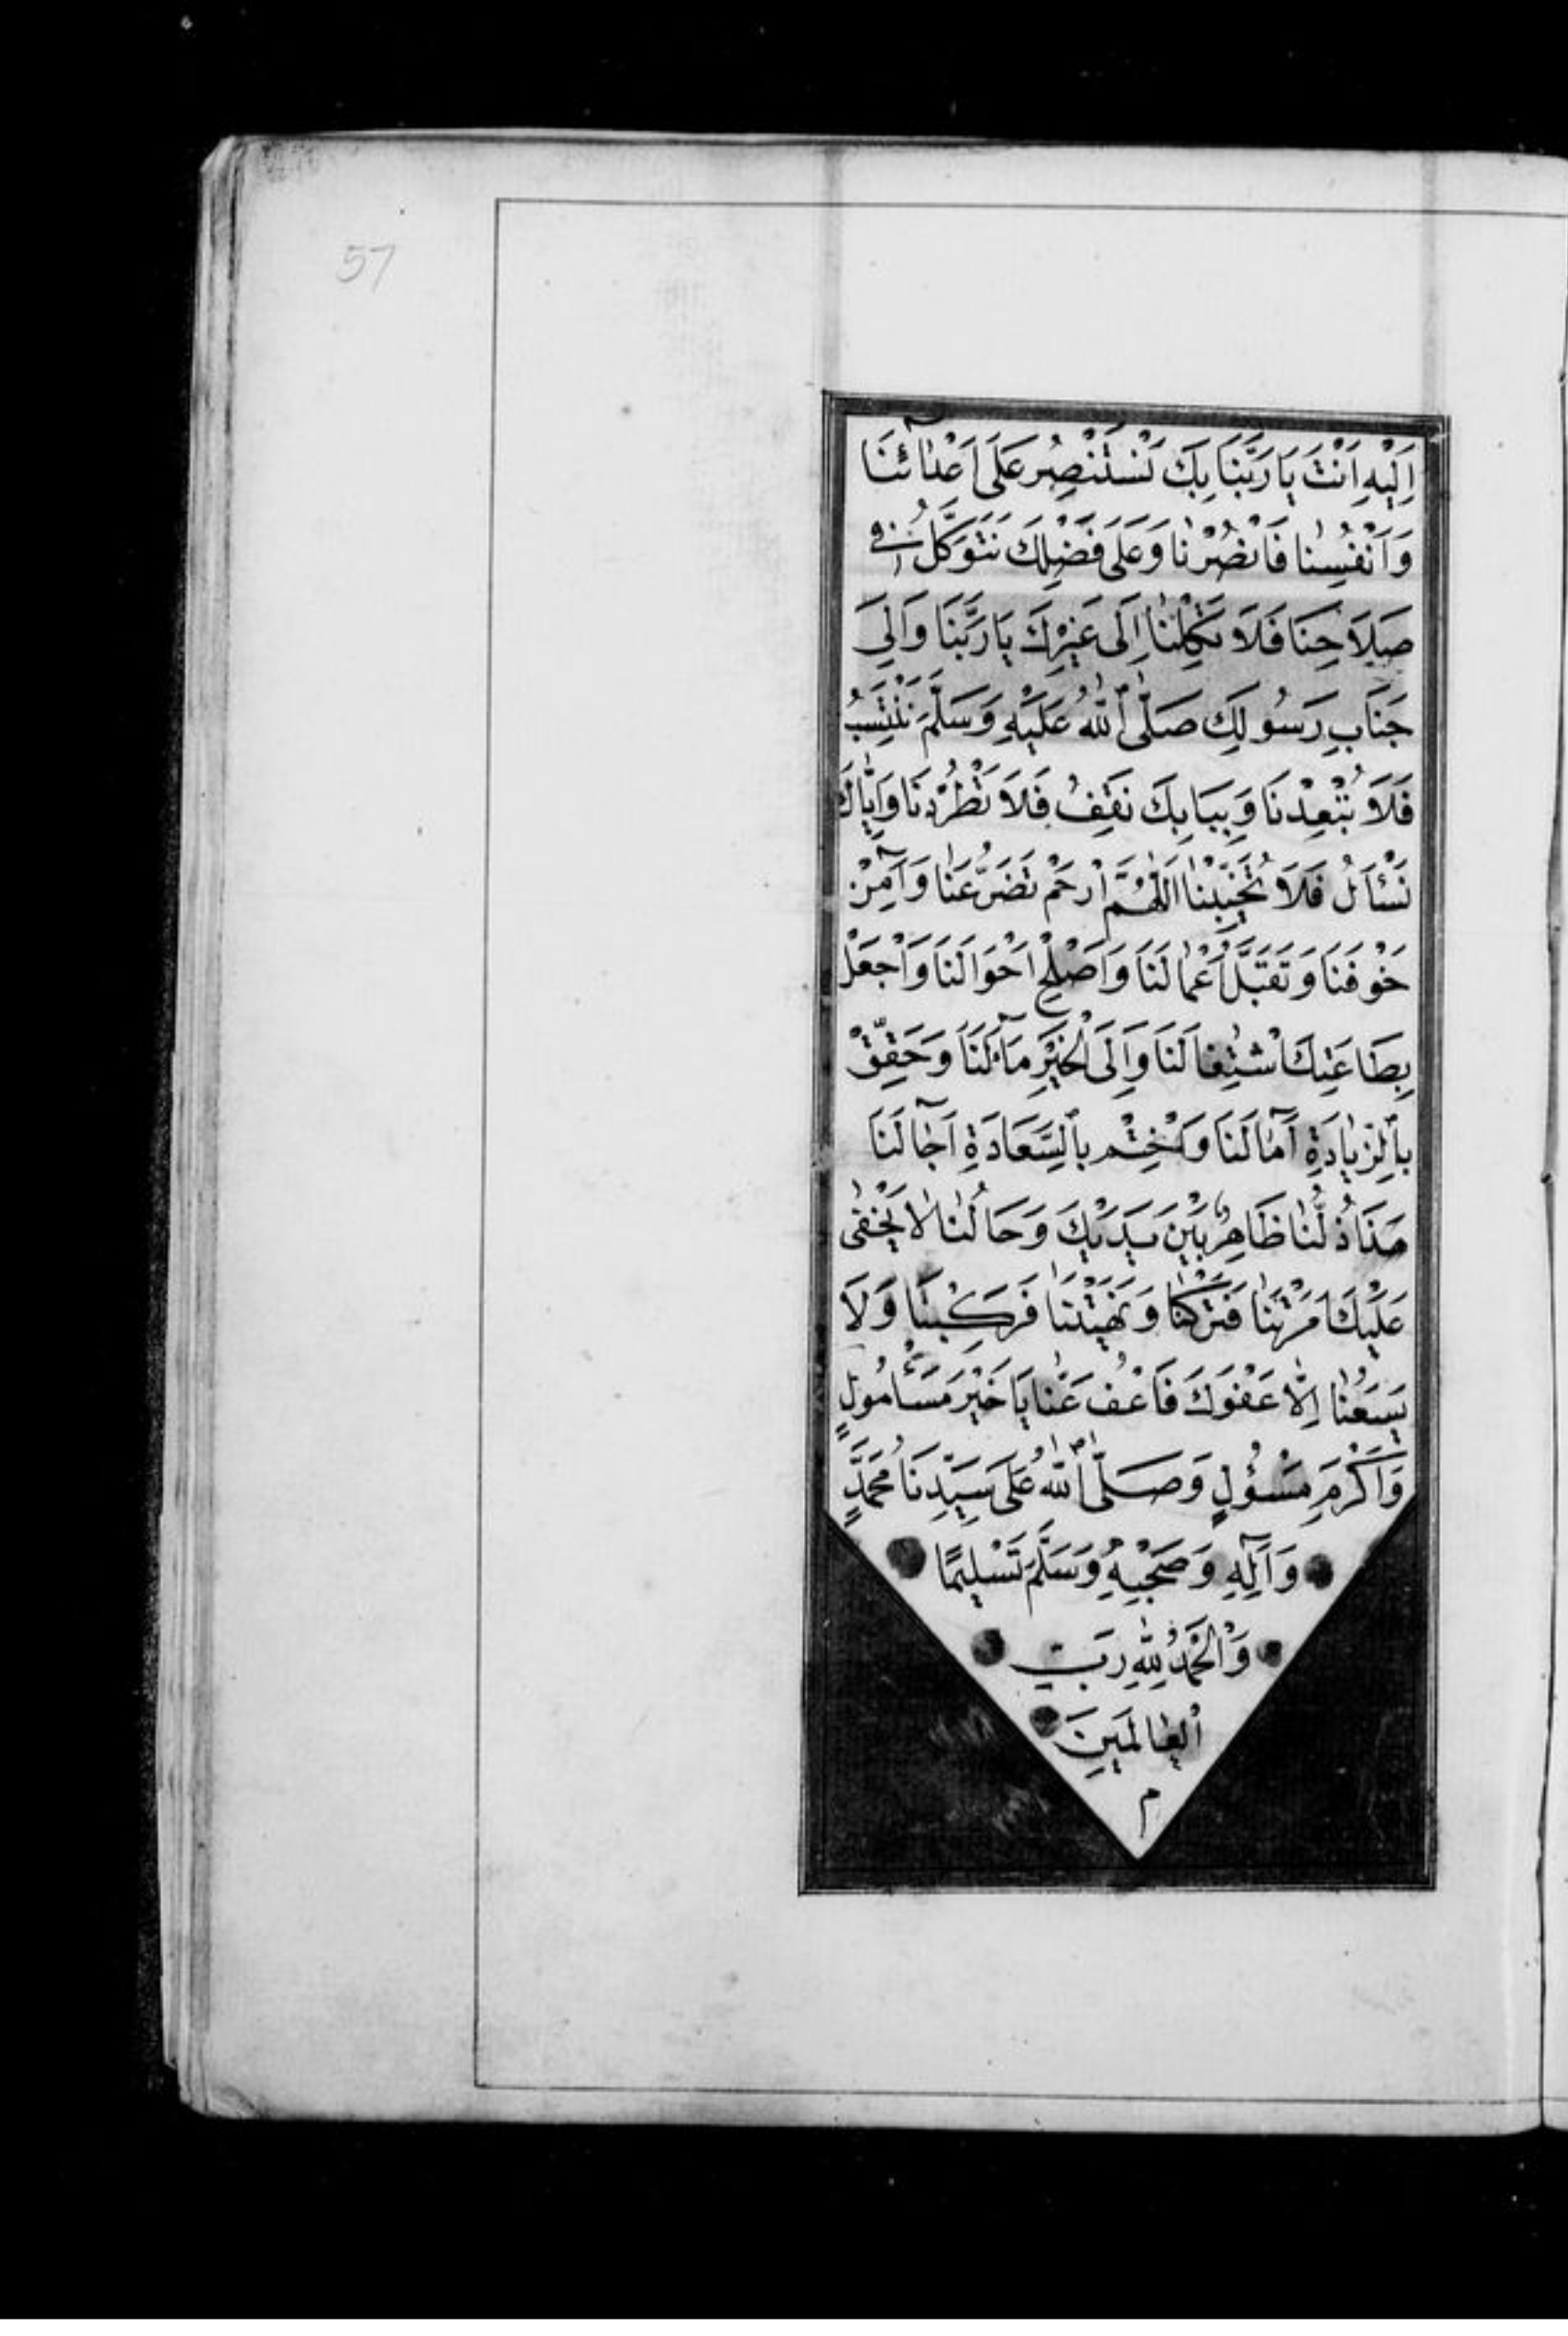 57
اِلَيْهِ اَنْتَ يَا رَبَّنَا بِكَ نَسْتَنْصِرُ عَلَى اَعْدَائِنَا
وَاَنْفُسِنَا فَانْصُرْنَا وَعَلَى فَضْلِكَ نَتَوَكَّلُ فِي
صَلَاحِنَا فَلَا تَكِلْنَا اِلَى غَيْرِكَ يَا رَبَّنَا وَاِلَى
جَنَابِ رَسُولِكَ صَلَّى اللهُ عَلَيْهِ وَسَلَّمَ نَنْتَسِبُ
فَلَا تُبْعِدْنَا وَبِبَابِكَ نَقِفُ فَلَا تَطْرُدْنَا وَاِيَّاكَ
نَسْئَلُ فَلَا تُخَيِّبْنَا اللّٰهُمَّ ارْحَمْ تَضَرُّعَنَا وَآمِنْ
خَوْفَنَا وَتَقَبَّلْ اَعْمَالَنَا وَاَصْلِحْ اَحْوَالَنَا وَاجْعَلْ
بِطَاعَتِكَ اشْتِغَالَنَا وَاِلَى الْخَيْرِ مَآلَنَا وَحَقِّقْ
بِالزِّيَادَةِ آمَالَنَا وَاخْتِمْ بِالسَّعَادَةِ آجَالَنَا
هَذَا ذُلُّنَا ظَاهِرٌ بَيْنَ يَدَيْكَ وَحَالُنَا لَا يَخْفٰى
عَلَيْكَ اَمَرْتَنَا فَتَرَكْنَا وَنَهَيْتَنَا فَرَكِبْنَا وَلَا
يَسَعُنَا اِلَّا عَفْوَكَ فَاعْفُ عَنَّا يَا خَيْرَ مَأْمُولٍ
وَاَكْرَمَ مَسْؤُلٍ وَصَلَّى اللهُ عَلَى سَيِّدِنَا مُحَمَّدٍ
وَآلِهِ وَصَحْبِهِ وَسَلَّمَ تَسْلِيمًا
وَالْحَمْدُ لِلّٰهِ رَبِّ
الْعَالَمِينَ
م